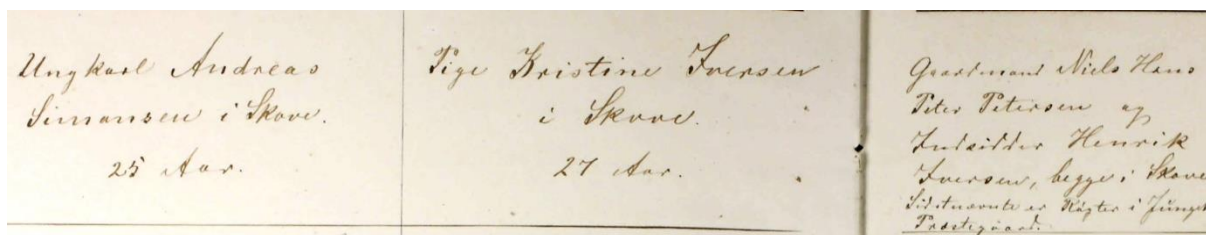 Ungkarl Andreas
Simonsen i Skove.
25 Aar.
Pige Kristine Iversen
i Skove.
27 Aar.
Gaardmand Niels Hans
Peter Petersen og
Indsidder Henrik
Iversen, begge i Skove
Sidstnævnte er Røgter i Junget
Præstegaard.